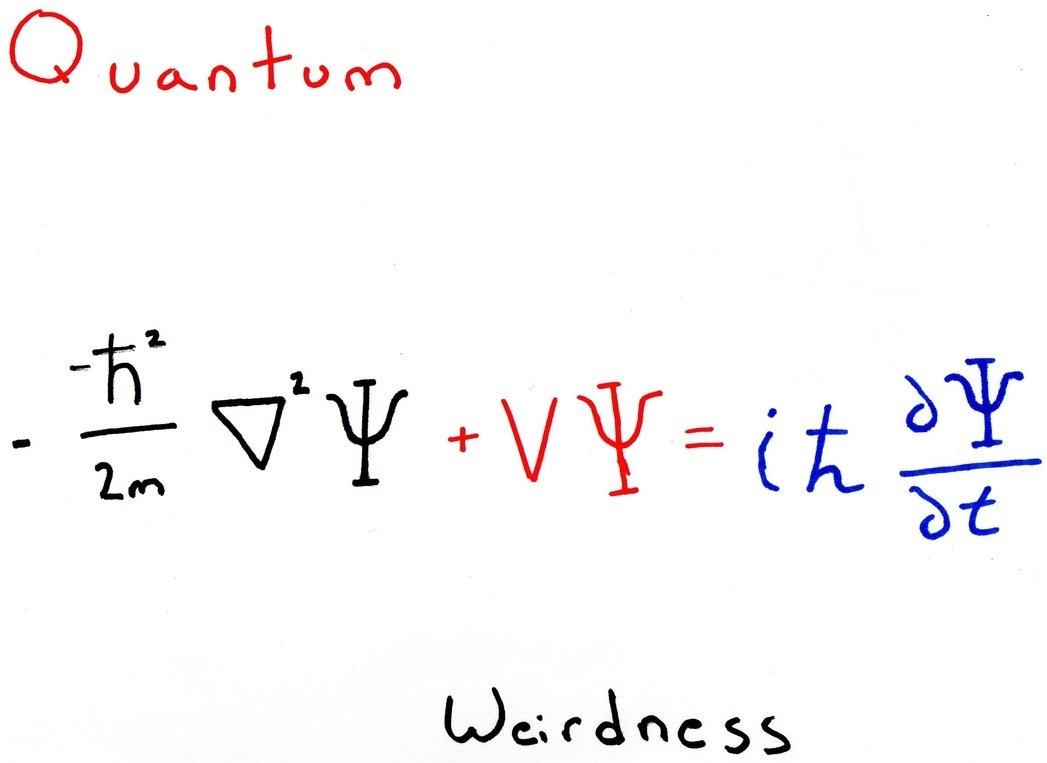 Quantum
- -ħ²/2m ∇²Ψ + VΨ = iħ ∂Ψ/∂t
Weirdness